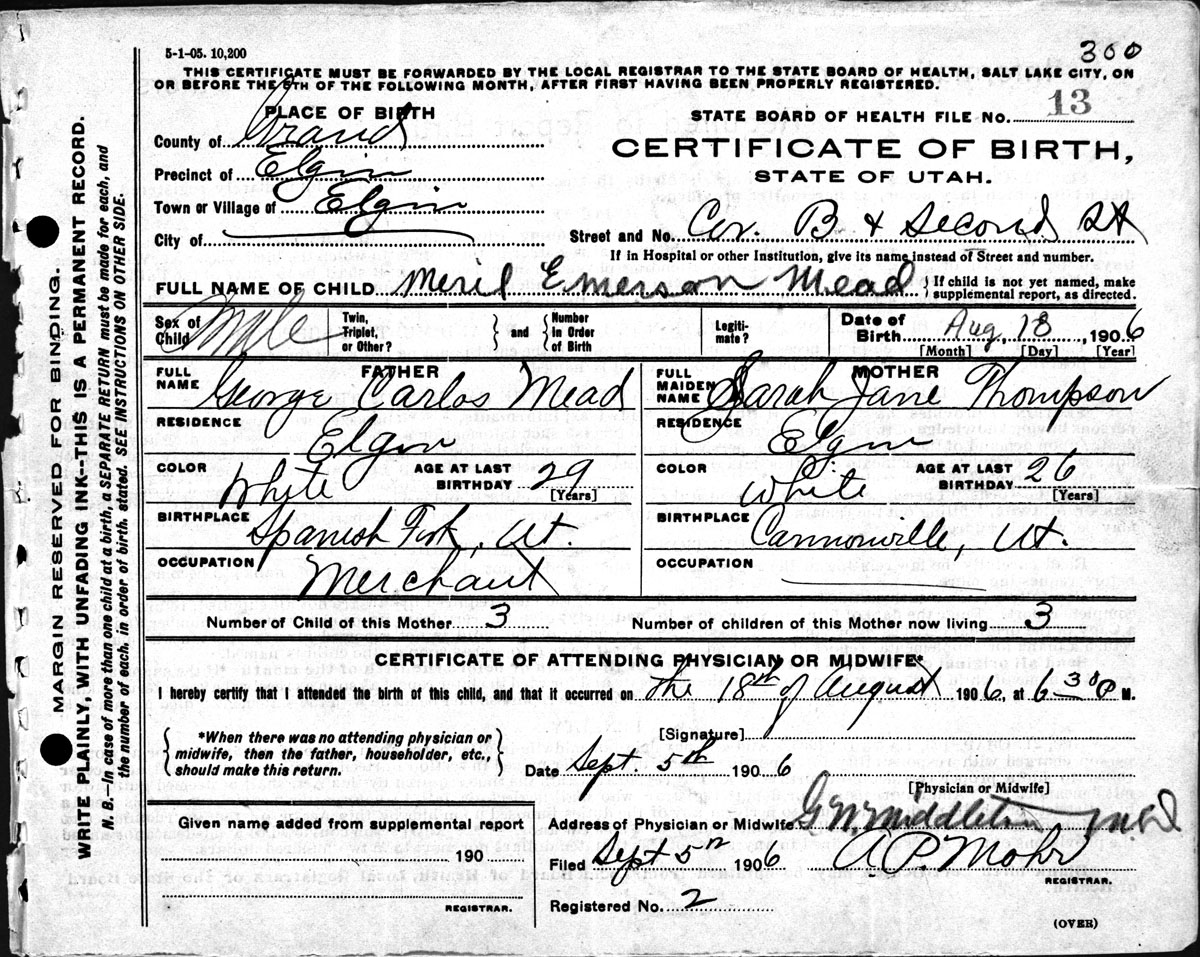 5-1-05. 10,200
300
THIS CERTIFICATE MUST BE FORWARDED BY THE LOCAL REGISTRAR TO THE STATE BOARD OF HEALTH, SALT LAKE CITY, ON
OR BEFORE THE 5TH OF THE FOLLOWING MONTH, AFTER FIRST HAVING BEEN PROPERLY REGISTERED.
PLACE OF BIRTH
STATE BOARD OF HEALTH FILE NO. 13
County of Grand
CERTIFICATE OF BIRTH,
Precinct of Elgin
STATE OF UTAH.
Town or Village of Elgin
City of
Street and No. Cor. B & Second St
If in Hospital or other Institution, give its name instead of Street and number.
FULL NAME OF CHILD Meril Emerson Mead { If child is not yet named, make
supplemental report, as directed.
Sex of Child Male
Twin, Triplet, or Other? } and { Number in Order of Birth
Legiti-mate?
Date of Birth Aug, 18, 1906
[Month] [Day] [Year]
FATHER
FULL NAME George Carlos Mead
RESIDENCE Elgin
COLOR White AGE AT LAST BIRTHDAY 29
[Years]
BIRTHPLACE Spanish Fork, Ut.
OCCUPATION Merchant
MOTHER
FULL MAIDEN NAME Sarah Jane Thompson
RESIDENCE Elgin
COLOR White AGE AT LAST BIRTHDAY 26
[Years]
BIRTHPLACE Cannonville, Ut.
OCCUPATION
Number of Child of this Mother 3 Number of children of this Mother now living 3
CERTIFICATE OF ATTENDING PHYSICIAN OR MIDWIFE*
I hereby certify that I attended the birth of this child, and that it occurred on the 18th of August 1906, at 6 30 P M.
{ *When there was no attending physician or
midwife, then the father, householder, etc.,
should make this return. }
[Signature]
Date Sept. 5th 1906
[Physician or Midwife]
Given name added from supplemental report
190
REGISTRAR.
Address of Physician or Midwife G W Middleton M D
Filed Sept 5th 1906 A P. Mohr
REGISTRAR.
Registered No. 2
(OVER)
MARGIN RESERVED FOR BINDING.
WRITE PLAINLY, WITH UNFADING INK--THIS IS A PERMANENT RECORD.
N. B.—In case of more than one child at a birth, a SEPARATE RETURN must be made for each, and
the number of each, in order of birth, stated. SEE INSTRUCTIONS ON OTHER SIDE.